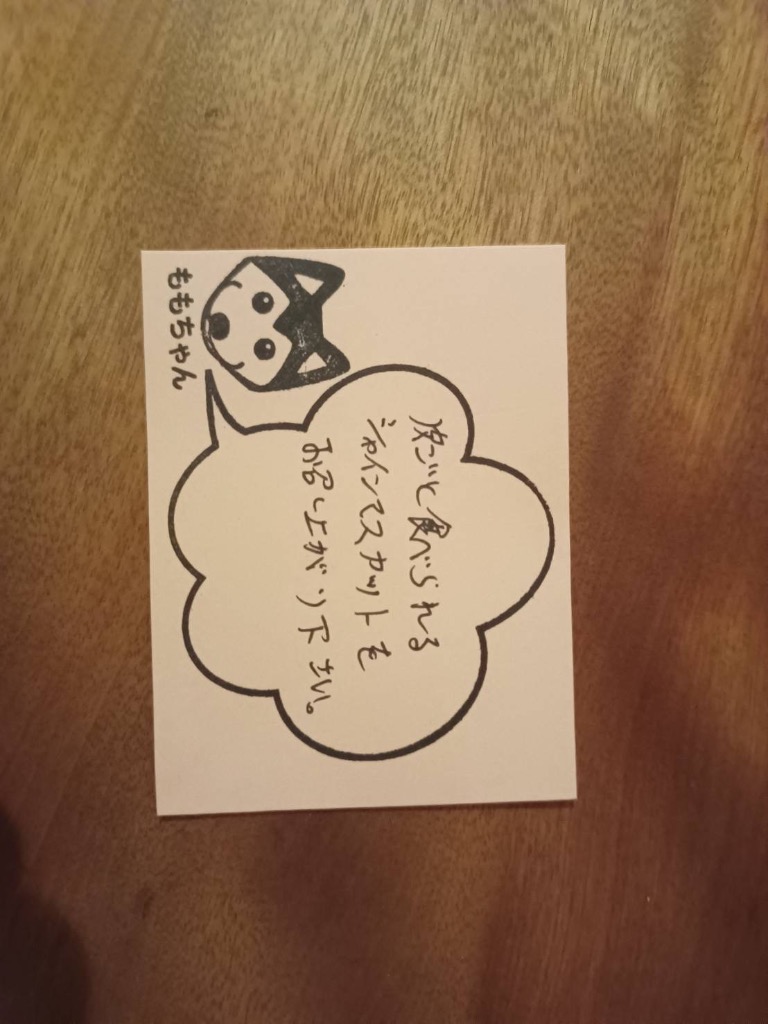 皮ごと食べられる
シャインマスカットを
お召し上がり下さい。
ももちゃん